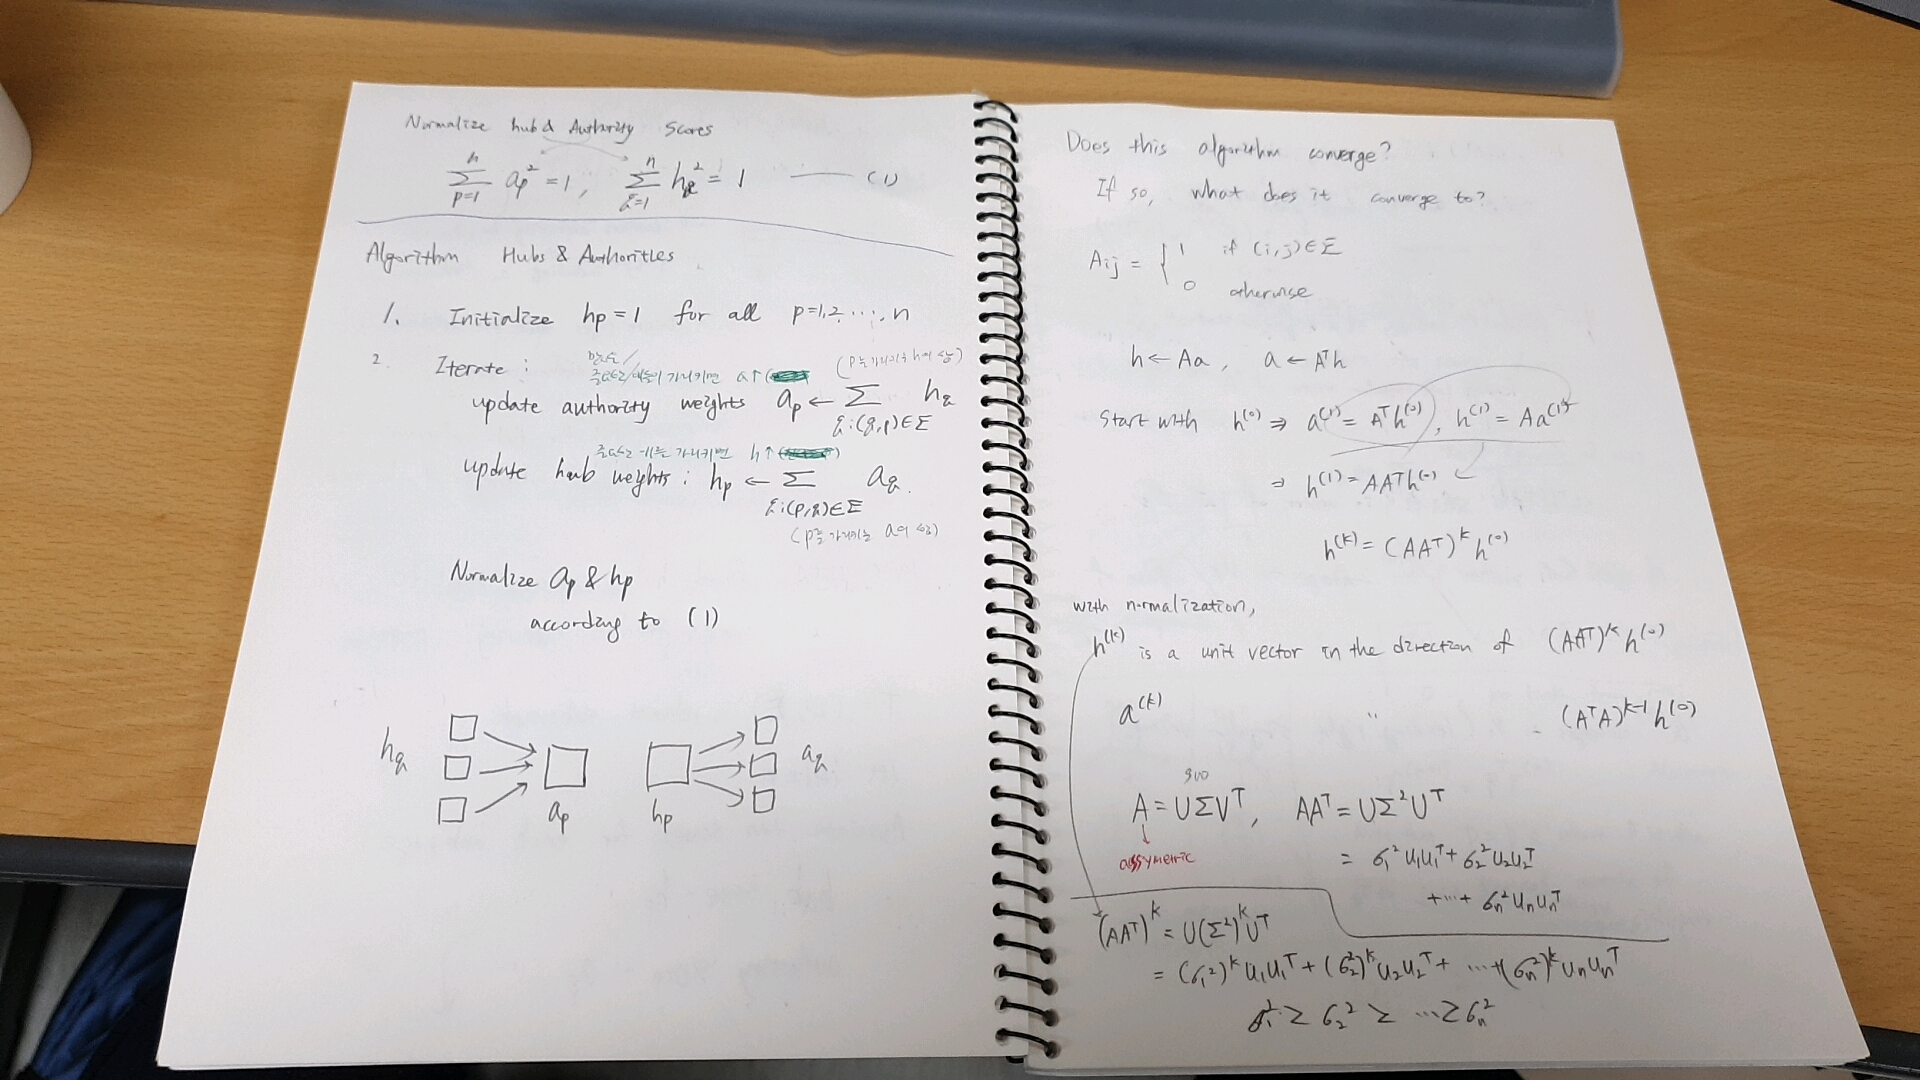 Normalize hub & Authority Scores
n∑p=1 ap² = 1, n∑q=1 hq² = 1 —— (1)
Algorithm Hubs & Authorities
1. Initialize hp = 1 for all p=1,2,...,n
2. Iterate :
가리키면 a↑
update authority weights ap ← ∑ q:(q,p)∈E hq
가리키면 h↑
update hub weights : hp ← ∑ q:(p,q)∈E aq
Normalize ap & hp
according to (1)
hq ap hp aq
Does this algorithm converge?
If so, what does it converge to?
Aij = { 1 if (i,j)∈E
0 otherwise
h ← Aa, a ← Aᵀh
Start with h⁽⁰⁾ ⇒ a⁽¹⁾ = Aᵀh⁽⁰⁾, h⁽¹⁾ = Aa⁽¹⁾
⇒ h⁽¹⁾ = AAᵀh⁽⁰⁾
h⁽ᵏ⁾ = (AAᵀ)ᵏ h⁽⁰⁾
with normalization,
h⁽ᵏ⁾ is a unit vector in the direction of (AAᵀ)ᵏ h⁽⁰⁾
a⁽ᵏ⁾ " (AᵀA)ᵏ⁻¹ h⁽⁰⁾
SVD
A = UΣVᵀ, AAᵀ = UΣ²Uᵀ
assymetric
= σ₁²u₁u₁ᵀ + σ₂²u₂u₂ᵀ
+ ... + σn²ununᵀ
(AAᵀ)ᵏ = U(Σ²)ᵏUᵀ
= (σ₁²)ᵏu₁u₁ᵀ + (σ₂²)ᵏu₂u₂ᵀ + ... + (σn²)ᵏununᵀ
σ₁² ≥ σ₂² ≥ ... ≥ σn²